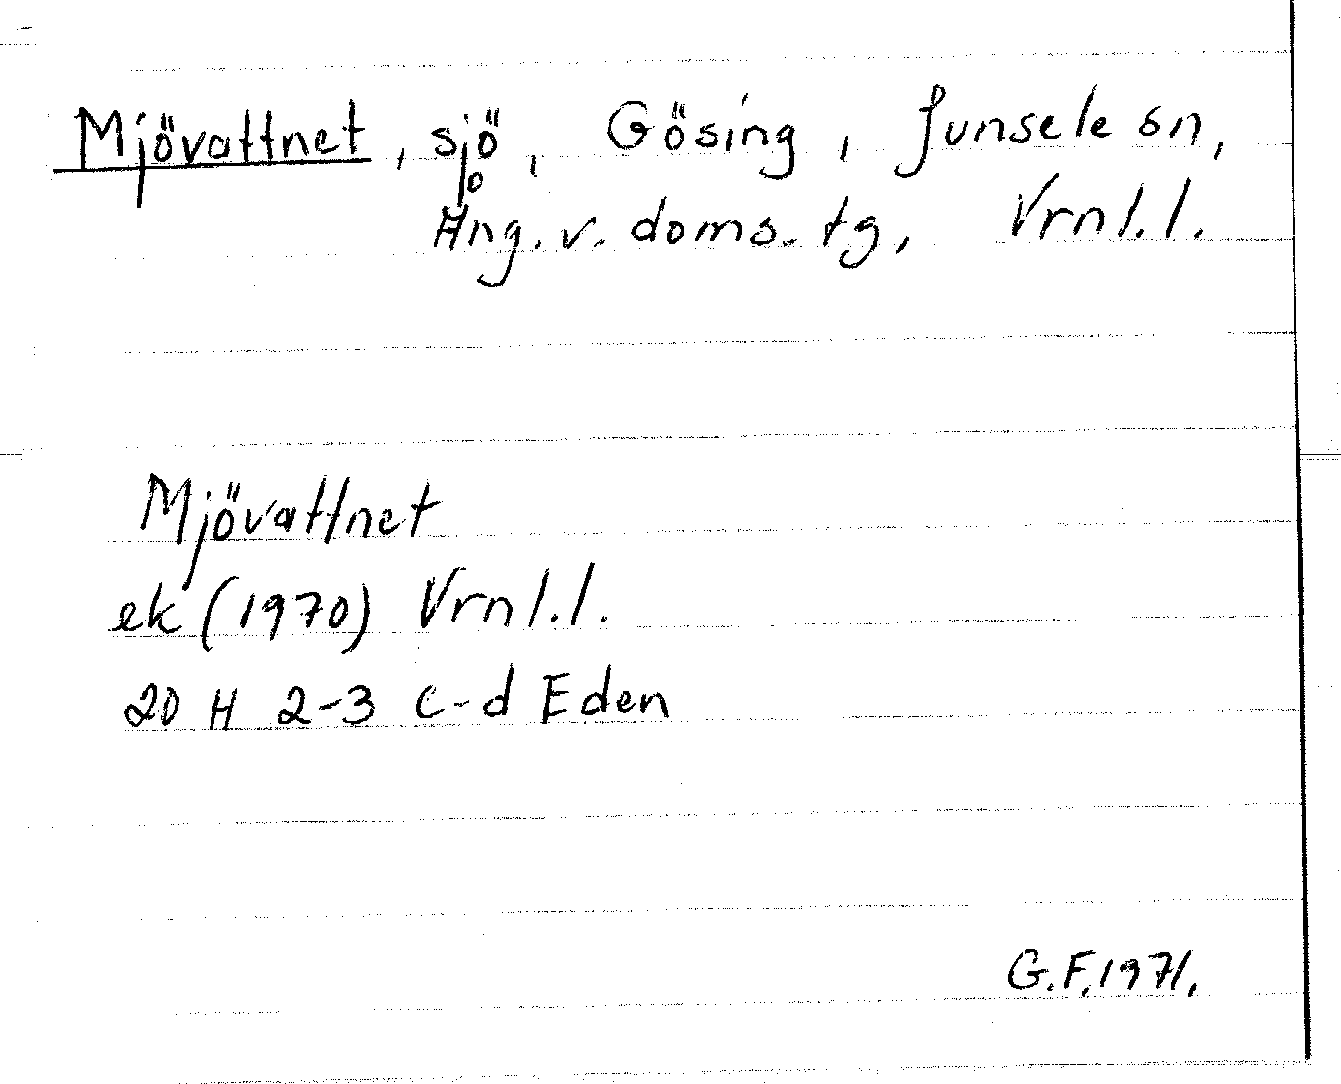 Mjövattnet, sjö, Gösing, Junsele sn,
Ång. v. doms. tg, Vrnl. l.
Mjövattnet
ek (1970) Vrnl. l.
20 H 2-3 c-d Eden
G.F. 1971.